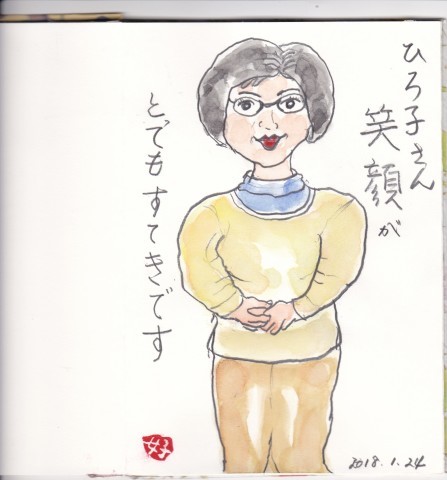 ひろ子さん
笑顔が
とてもすてきです
2018.1.24